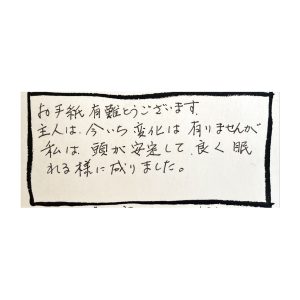 お手紙有難とうございます.
主人は、今いち変化は有りませんが
私は、頭が安定して、良く眠
れる様に成りました。